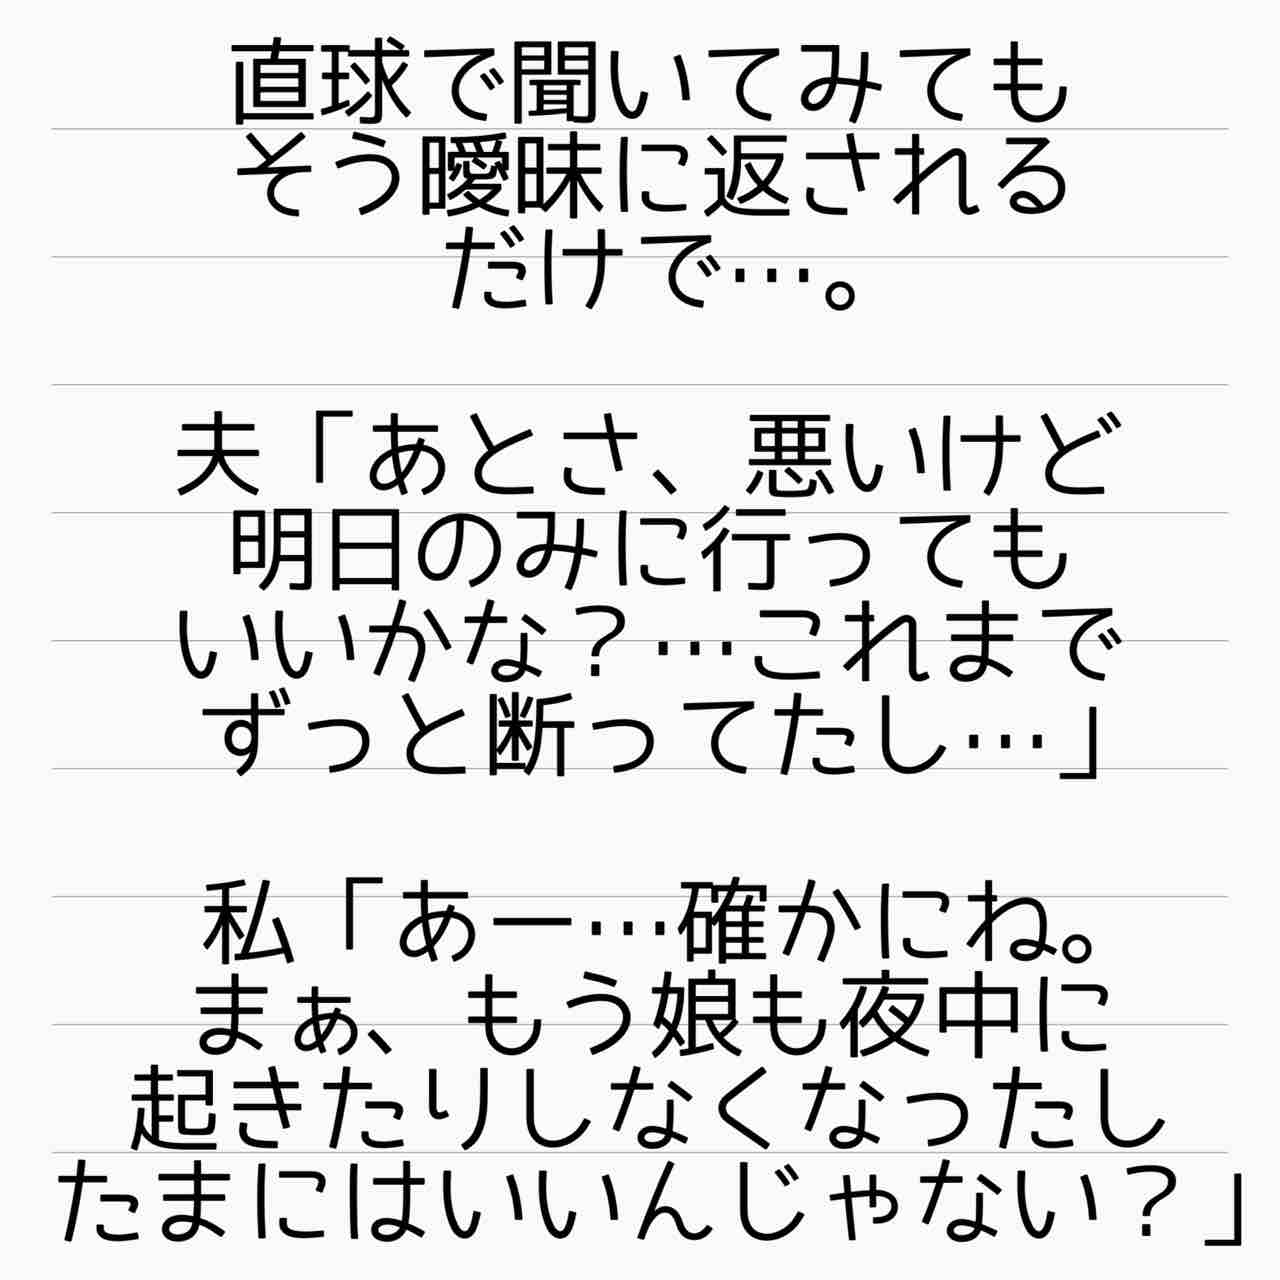 直球で聞いてみても
そう曖昧に返される
だけで…。
夫「あとさ、悪いけど
明日のみに行っても
いいかな？…これまで
ずっと断ってたし…」
私「あー…確かにね。
まぁ、もう娘も夜中に
起きたりしなくなったし
たまにはいいんじゃない？」